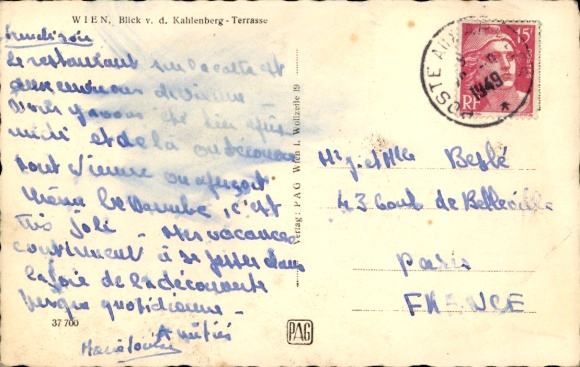 WIEN, Blick v. d. Kahlenberg - Terrasse
Lundi soir
Le restaurant sur la carte est
aux environs de Vienne
nous y avons été hier après
midi et de là on découvre
tout Vienne on aperçoit
même le Danube, c'est
très joli - Mes vacances
continuent à se passer dans
la joie de la découverte
presque quotidienne -
Amitiés
37 700
Verlag: PAG Wien I, Wollzeile 19
PAG
15F
RF
POSTE AUX
1949
Mr J. et Mlle Beslé
43 Boul de Belleville
Paris
FRANCE